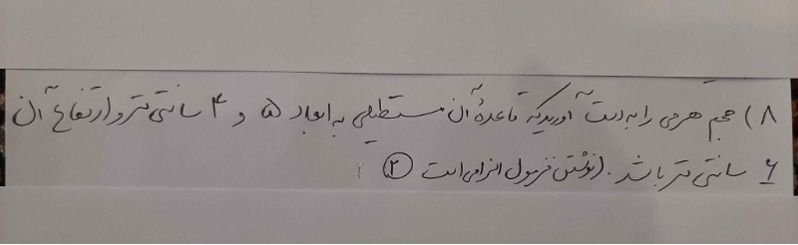 ۸) حجم هرمی را به دست آورید که قاعدهٔ آن مستطیلی به ابعاد ۵ و ۴ سانتی متر و ارتفاع آن
۶ سانتی متر باشد. (نوشتن فرمول الزامی است ۲